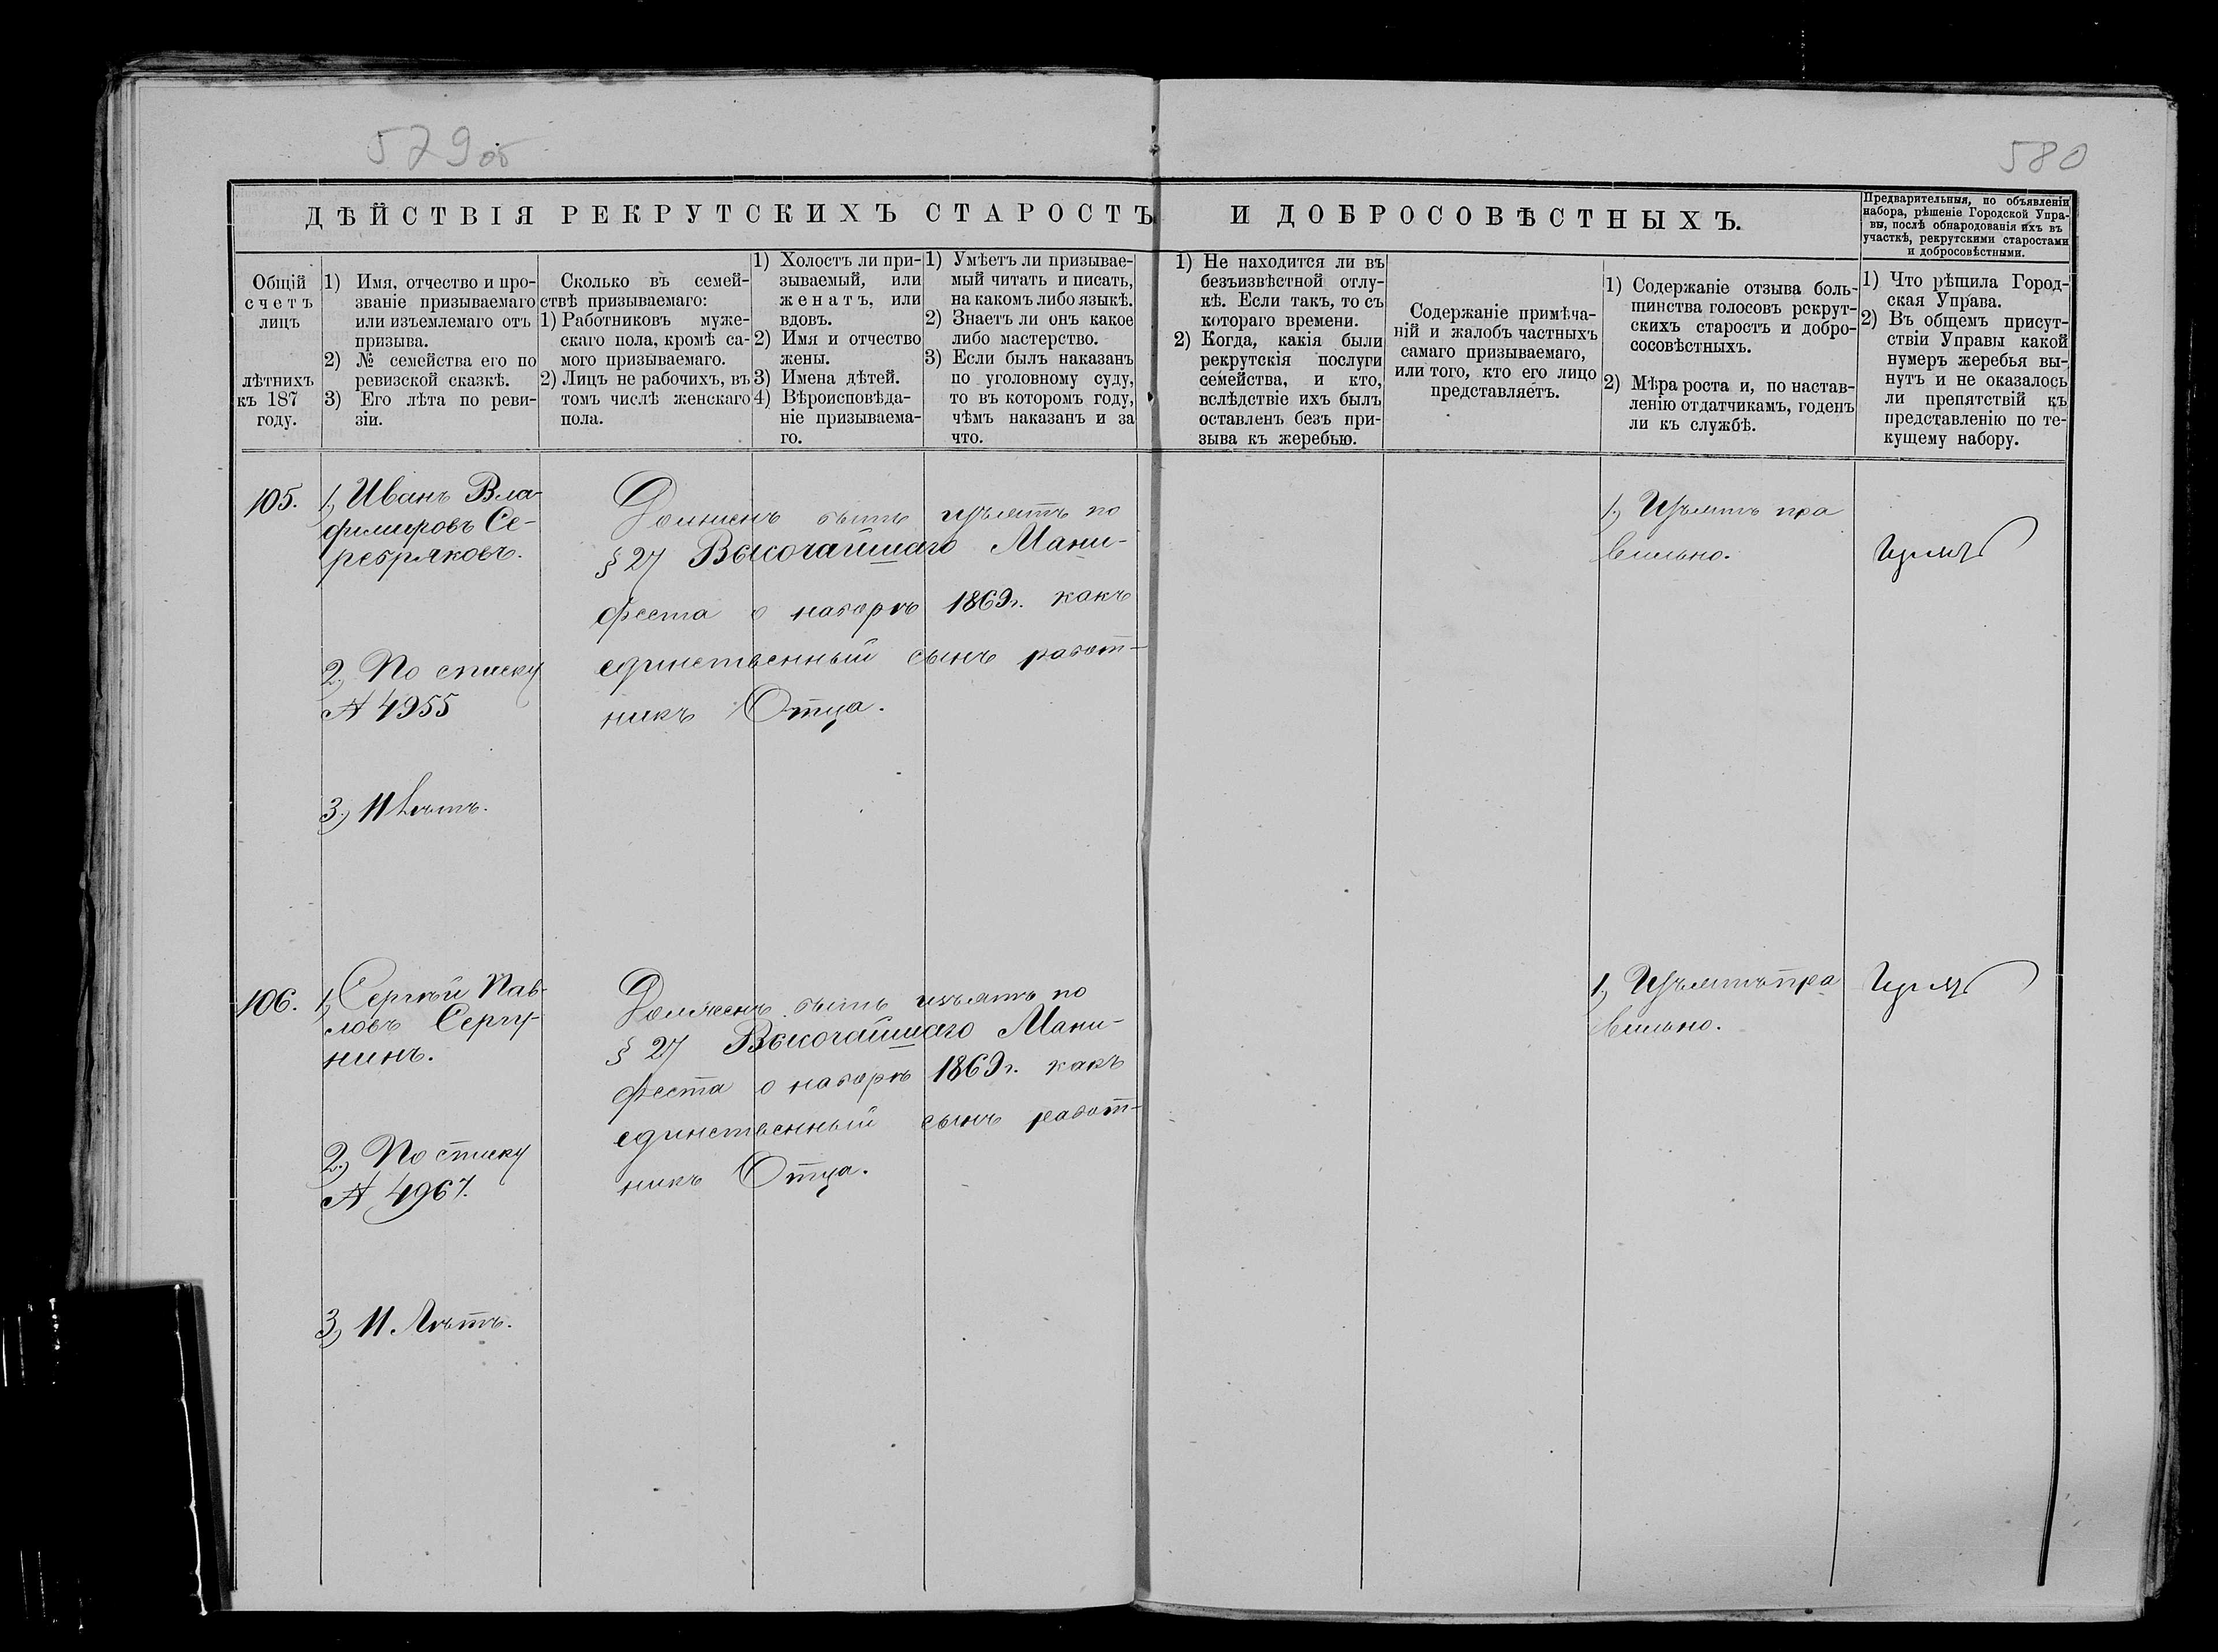 579 об
580
ДѢЙСТВІЯ РЕКРУТСКИХЪ СТАРОСТЪ И ДОБРОСОВѢСТНЫХЪ.
Предварительныя, по объявленіи
набора, рѣшеніе Городской Упра-
вы, послѣ обнародованія ихъ въ
участкѣ, рекрутскими старостами
и добросовѣстными.
Общій
счетъ
лицъ
лѣтнихъ
къ 187
году.
1) Имя, отчество и про-
званіе призываемаго
или изъемлемаго отъ
призыва.
2) № семейства его по
ревизской сказкѣ.
3) Его лѣта по реви-
зіи.
Сколько въ семей-
ствѣ призываемаго:
1) Работниковъ муже-
скаго пола, кромѣ са-
мого призываемаго.
2) Лицъ не рабочихъ, въ
томъ числѣ женскаго
пола.
1) Холостъ ли при-
зываемый, или
женатъ, или
вдовъ.
2) Имя и отчество
жены.
3) Имена дѣтей.
4) Вѣроисповѣда-
ніе призываема-
го.
1) Умѣетъ ли призывае-
мый читать и писать,
на какомъ либо языкѣ.
2) Знаетъ ли онъ какое
либо мастерство.
3) Если былъ наказанъ
по уголовному суду,
то въ которомъ году,
чѣмъ наказанъ и за
что.
1) Не находится ли въ
безъизвѣстной отлу-
кѣ. Если такъ, то съ
котораго времени.
2) Когда, какія были
рекрутскія послуги
семейства, и кто,
вслѣдствіе ихъ былъ
оставленъ безъ при-
зыва къ жеребью.
Содержаніе примѣча-
ній и жалобъ частныхъ
самаго призываемаго,
или того, кто его лицо
представляетъ.
1) Содержаніе отзыва боль-
шинства голосовъ рекрут-
скихъ старостъ и добро-
сосовѣстныхъ.
2) Мѣра роста и, по настав-
ленію отдатчикамъ, годенъ
ли къ службѣ.
1) Что рѣшила Город-
ская Управа.
2) Въ общемъ присут-
ствіи Управы какой
нумеръ жеребья вы-
нутъ и не оказалось
ли препятствій къ
представленію по те-
кущему набору.
105.
1) Иванъ Вла-
димировъ Се-
ребряковъ.
2) По списку
№ 4955
3) 11 лѣтъ.
Долженъ быть изъятъ по
§ 27 Высочайшаго Мани-
феста о наборѣ 1869 г. какъ
единственный сынъ работ-
никъ Отца.
1) Изъятъ пра
вильно.
106.
1) Сергѣй Пав-
ловъ Сергу-
нинъ.
2) По списку
№ 4967.
3) 11 Лѣтъ.
Долженъ быть изъятъ по
§ 27 Высочайшаго Мани-
феста о наборѣ 1869 г. какъ
единственный сынъ работ-
никъ Отца.
1) Изъятъ пра
вильно.